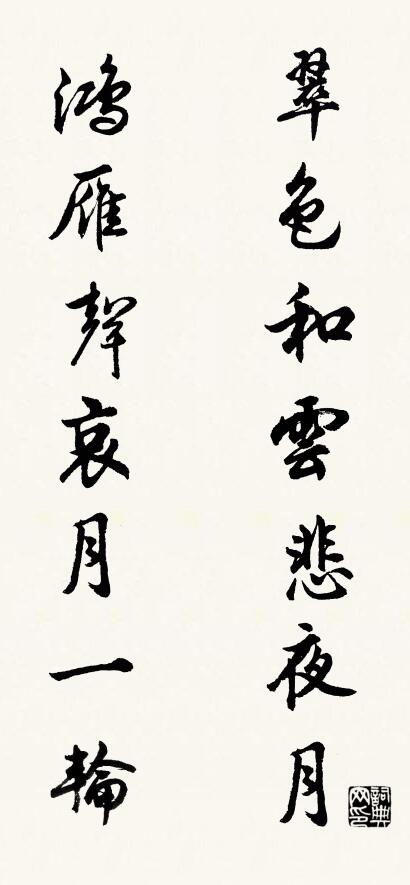 翠色和雲悲夜月
鴻雁聲哀月一輪
詞典网印